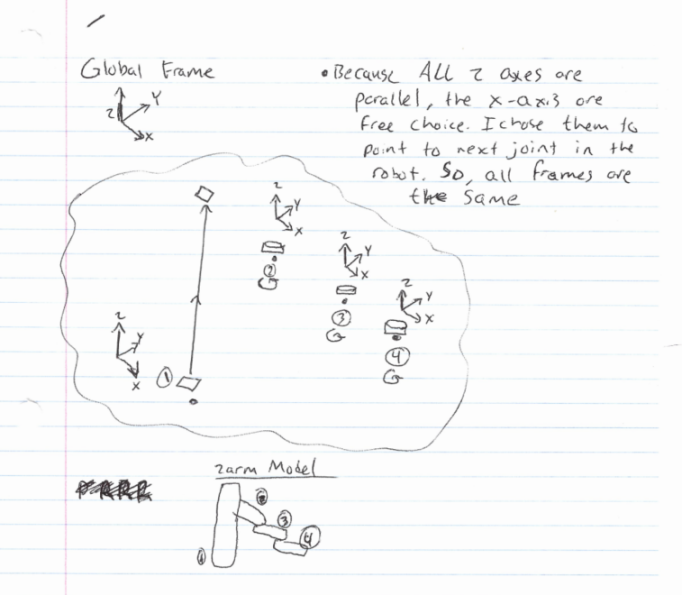 Global Frame
Z Y
X
• Because ALL z axes are
parallel, the x-axis are
free choice. I chose them to
point to next joint in the
robot. So, all frames are
the same
Z
Y
X
②
G
Z
Y
X
③
G
Z
Y
X
④
G
Z
Y
X
①
zarm Model
②
③
④
①